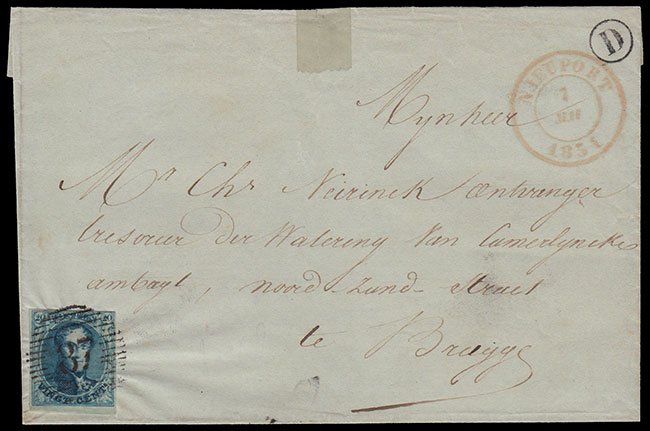 D
NIEUPORT
1851
Mynheer
Mr Chs Neirinck ontvanger
tresorier der Watering Van Camerlyncks
ambagt, noord-Zand-Straet
te Brugge
87
VINGT CENTS